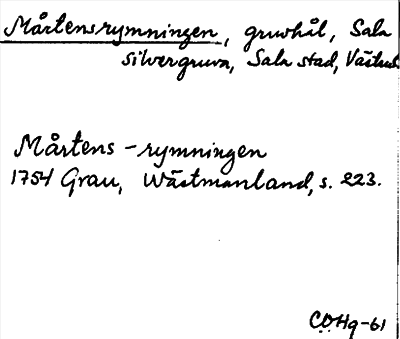 Mårtensrymningen, gruvhål, Sala
silvergruva, Sala stad, Västml.
Mårtens-rymningen
1754 Grau, Wästmanland, s. 223.
COHq-61